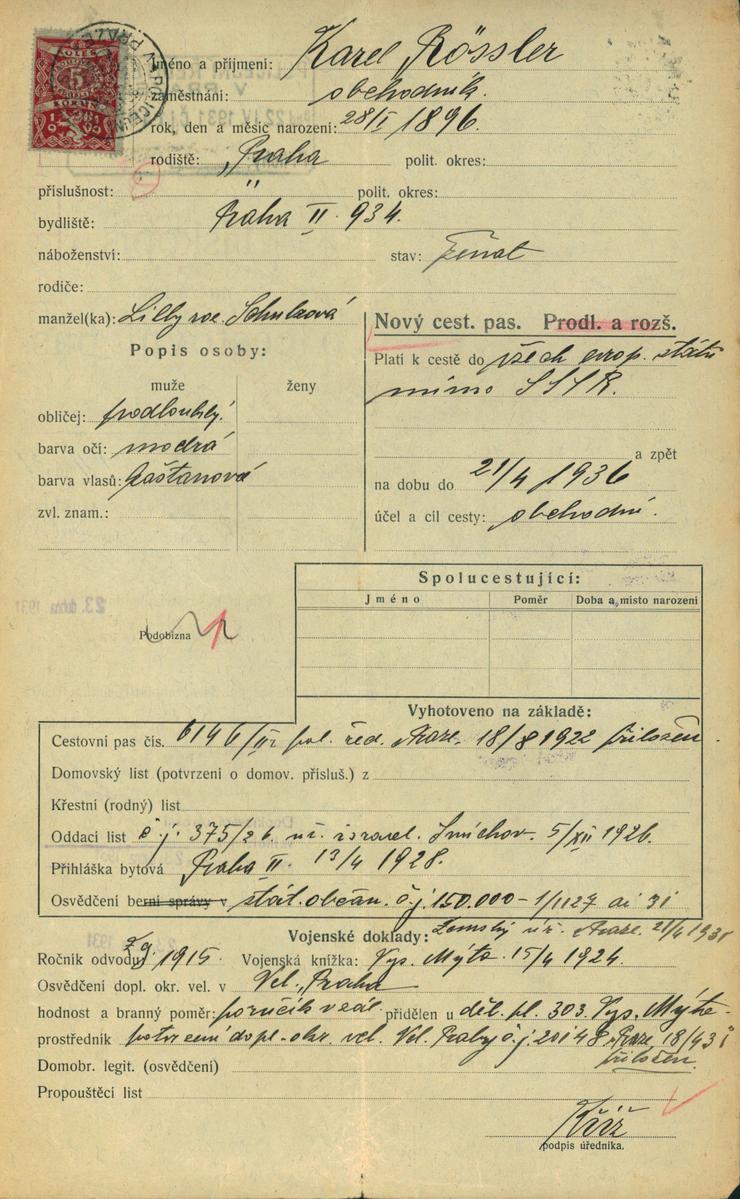 Jméno a přijmení: Karel Rössler
zaměstnání: obchodník.
rok, den a měsíc narození: 28/I 1896.
rodiště: Praha polit. okres:
příslušnost: " polit. okres:
bydliště: Praha II. 934.
náboženství: stav: ženat
rodiče:
manžel(ka): Lilly roz. Schulzová
Nový cest. pas. Prodl. a rozš.
Popis osoby:
Platí k cestě do všech evrop. států
mimo SSSR.
muže ženy
obličej: podlouhlý.
barva očí: modrá
barva vlasů: kaštanová
zvl. znam.:
a zpět
na dobu do 21/4 1936
účel a cíl cesty: obchodní.
Spolucestující:
Jméno Poměr Doba a místo narození
23. dubna 1931
Podobizna
Vyhotoveno na základě:
Cestovní pas čís. 6146/II pol. řed. Praze. 18/8 1922 přiložen.
Domovský list (potvrzení o domov. přísluš.) z
Křestní (rodný) list
Oddací list č.j. 375/26 israel. Smíchov. 5/XII 1926.
Přihláška bytová Praha II. 13/4 1928.
Osvědčení berní správy v stát. občan. č.j. 150.000-1/1127 ai 31
Zemský úř. Praze. 21/4 1931
Vojenské doklady:
Ročník odvodu 1915. Vojenská knížka: Vys. Mýto. 15/4 1924.
Osvědčení dopl. okr. vel. v Vel. Praha
hodnost a branný poměr: poručík přidělen u děl. pl. 303. Vys. Mýto-
prostředník potvrzení dopl. okr. vel. Vel. Prahy č.j. 20148 Praze 18/4 31
přiložen.
Domobr. legit. (osvědčení)
Propouštěcí list
Kříž
podpis úředníka.